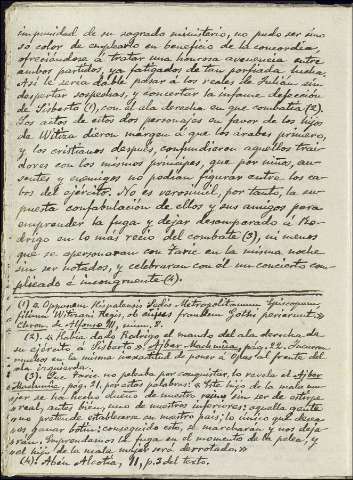 impunidad de su sagrado ministerio, no pudo ser sino
so color de emplearlo en beneficio de la concordia,
ofreciéndose á tratar una honrosa avenencia entre
ambos partidos, ya fatigados de tan porfiada lucha.
Así le sería dable pasar á los reales de Julián sin
despertar sospechas, y concertar la infame defección
de Sisberto (1), con el ala derecha en que combatía (2).
Los actos de estos dos personajes en favor de los hijos
de Witiza dieron margen á que los árabes primero,
y los cristianos después, confundieran aquellos trai-
dores con los mismos príncipes, que por niños, au-
sentes y enemigos no podían figurar entre los ca-
bos del ejército. No es verosímil, por tanto, la su-
puesta confabulación de ellos y sus amigos para
emprender la fuga y dejar desamparado á Ro-
drigo en lo mas recio del combate (3), ni menos
que se apersonaran con Taric en la misma noche
sin ser notados, y celebraran con él un concierto com-
plicado é incongruente (4).
(1) Oppanem Hispalensis Sedis Metropolitanum Episcopum,
filium Witizani Regis, ob cujus fraudem Gothi perierunt.»
Chron. de Alfonso III, núm. 8.
(2) «Había dado Rodrigo el mando del ala derecha de
su ejército á Sisberto.» Ajbar Machmúa, pág. 22. Incurren
muchos en la misma inexactitud de poner á Opas al frente del
ala izquierda.
(3) Que Taric no peleaba por conquistar, lo revela el Ajbar
Machmúa, pág. 21, por estas palabras: «Este hijo de la mala mu-
jer se ha hecho dueño de nuestro reyno sin ser de estirpe
real, antes bien, uno de nuestros inferiores: aquella gente
no pretende establecerse en nuestro país; lo único que desea
es ganar botín: conseguido esto, se marcharán y nos deja-
rán. Emprendamos la fuga en el momento de la pelea, y
el hijo de la mala mujer será derrotado.»
(4) Aben Alcotía, II, p. 3 del texto.